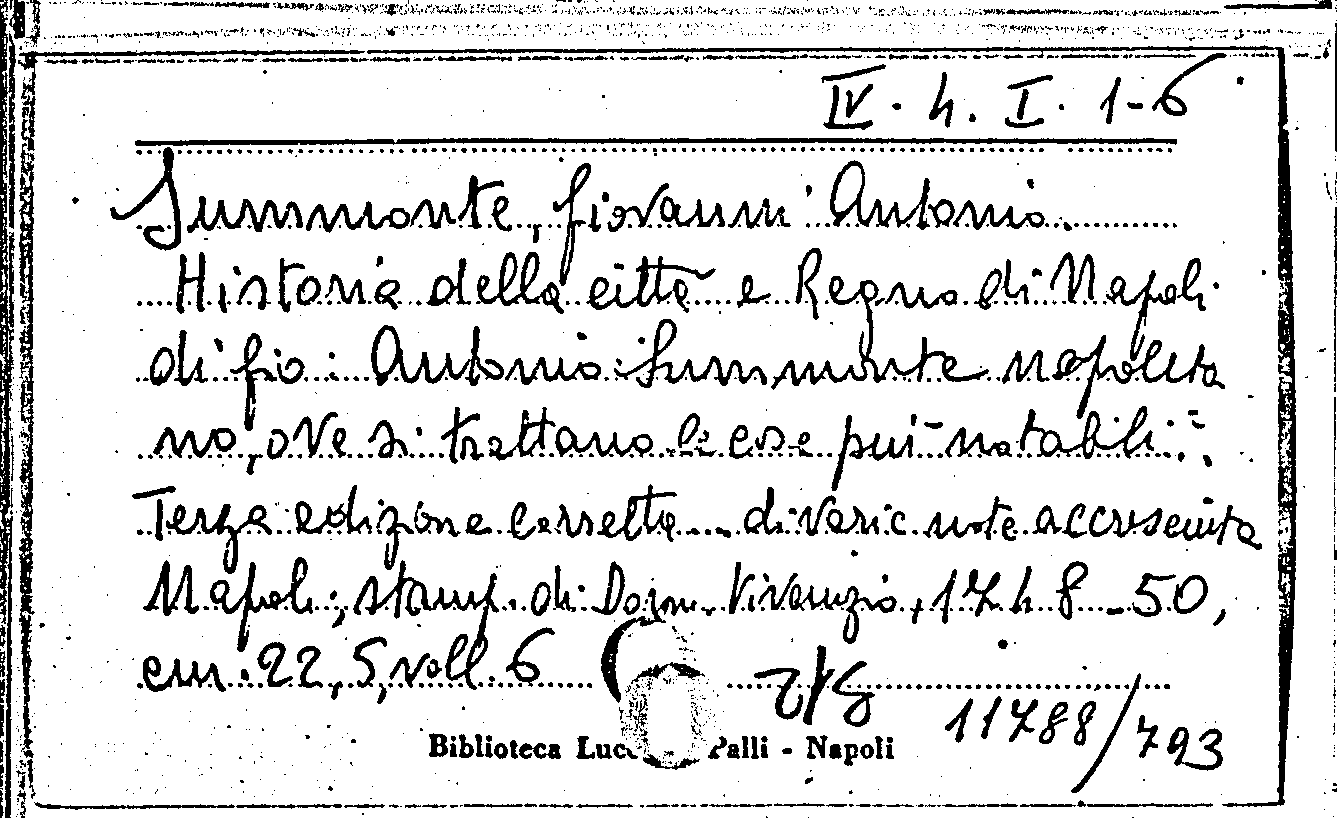 IV. 4. I. 1-6
Summonte, Giovanni Antonio.
Historia della città e Regno di Napoli
di Gio: Antonio Summonte napoleta
no, ove si trattano le cose più notabili...
Terza edizione corretta ... di varie note accresciuta
Napoli, stamp. di Dom. Vivenzio, 1748-50,
cm. 22,5, voll. 6
11788/793
Biblioteca Luc Palli - Napoli